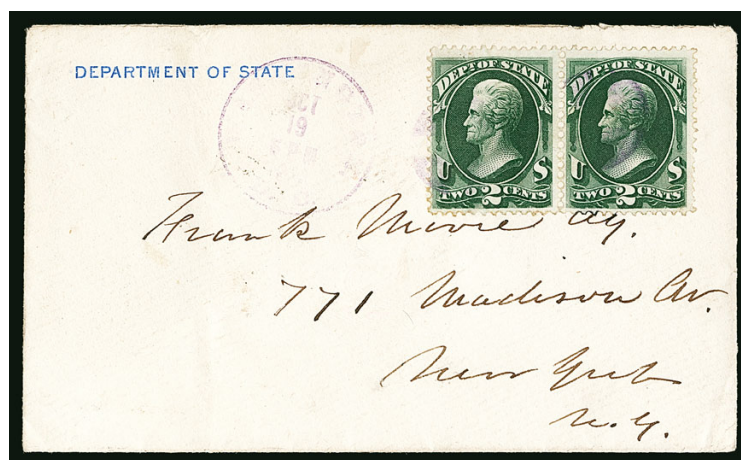 DEPARTMENT OF STATE
OCT
19
DEP'T OF STATE
U S
TWO 2 CENTS
DEP'T OF STATE
U S
TWO 2 CENTS
Frank Moore
771 Madison Av.
New York
N.Y.